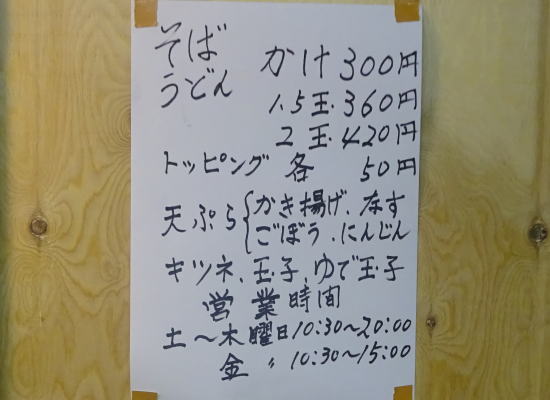 そば かけ 300円
うどん 1.5玉・360円
2玉・420円
トッピング 各 50円
天ぷら{かき揚げ、なす
ごぼう、にんじん
キツネ、玉子、ゆで玉子
営業時間
土〜木曜日10:30〜20:00
金 〃 10:30〜15:00